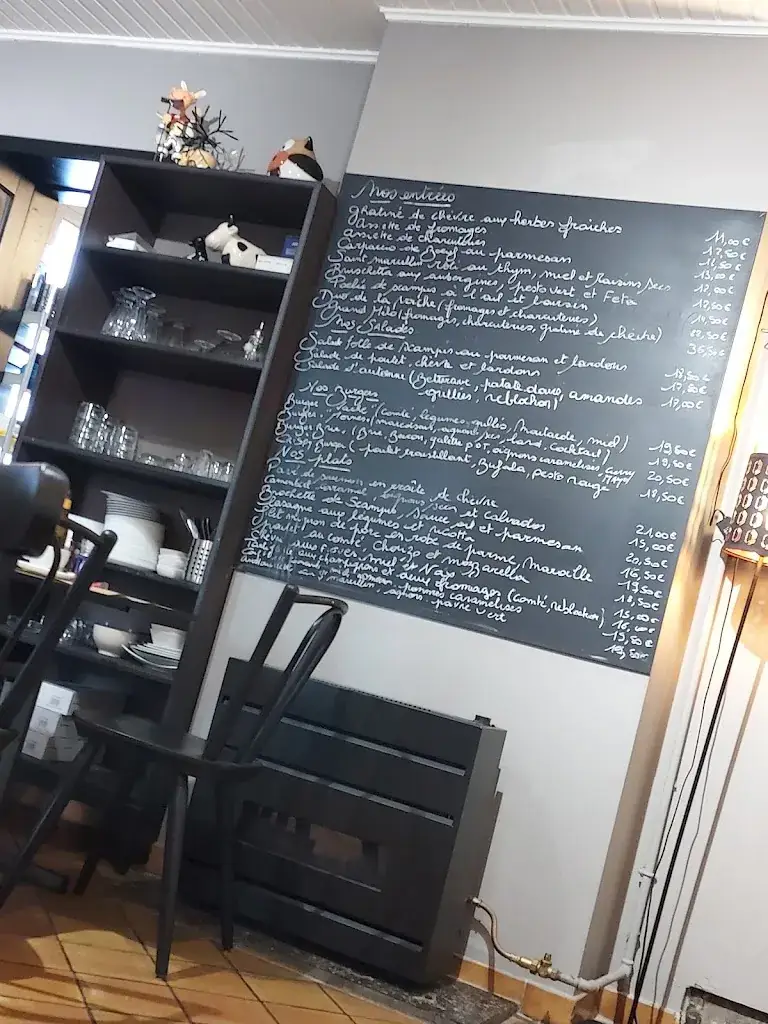 Nos entrées
Gratiné de chèvre aux herbes fraîches 11,00€
Assiette de fromages 17,50€
Assiette de charcuteries 16,50€
Carpaccio de Boeuf au parmesan 13,00€
Saint marcellin rôti au thym, miel et Raisins secs 12,00€
Bruschetta aux aubergines, pesto vert et Feta 12,50€
Poêlée de scampis à l'ail et boursin 14,50€
Duo de la vache (fromages et charcuteries) 22,50€
Grand Mélo (fromages, charcuteries, gratiné de chèvre) 36,50€
Nos Salades
Salade folle de scampis au parmesan et lardons 18,50€
Salade de poulet, chèvre et lardons 17,50€
Salade d'automne (Betterave, patate douce, amandes 17,00€
grillées, reblochon)
Nos Burgers
Burger Vache (comté, légumes grillés, moutarde, miel) 19,50€
Burger (morbier, oignons secs, lard, cocktail) 19,50€
Burger Brie (Brie, Bacon, galette pdt, oignons caramélisés, curry 20,50€
mayo)
Burger (poulet croustillant, Bufala, pesto rouge 18,50€
Nos plats
Pavé de saumon en croûte de chèvre 21,00€
Camembert caramel, oignons secs et calvados 15,00€
Brochette de scampis sauce ail et parmesan 20,50€
Lasagne aux légumes et ricotta 16,50€
Filet mignon de porc en robe de parme, maroille 19,50€
au comté, Chorizo et mozzarella 18,50€
miel et Noix 15,00€
aux fromages (comté, reblochon) 16,00€
pommes caramélisées 19,50€
poivre vert 19,50€